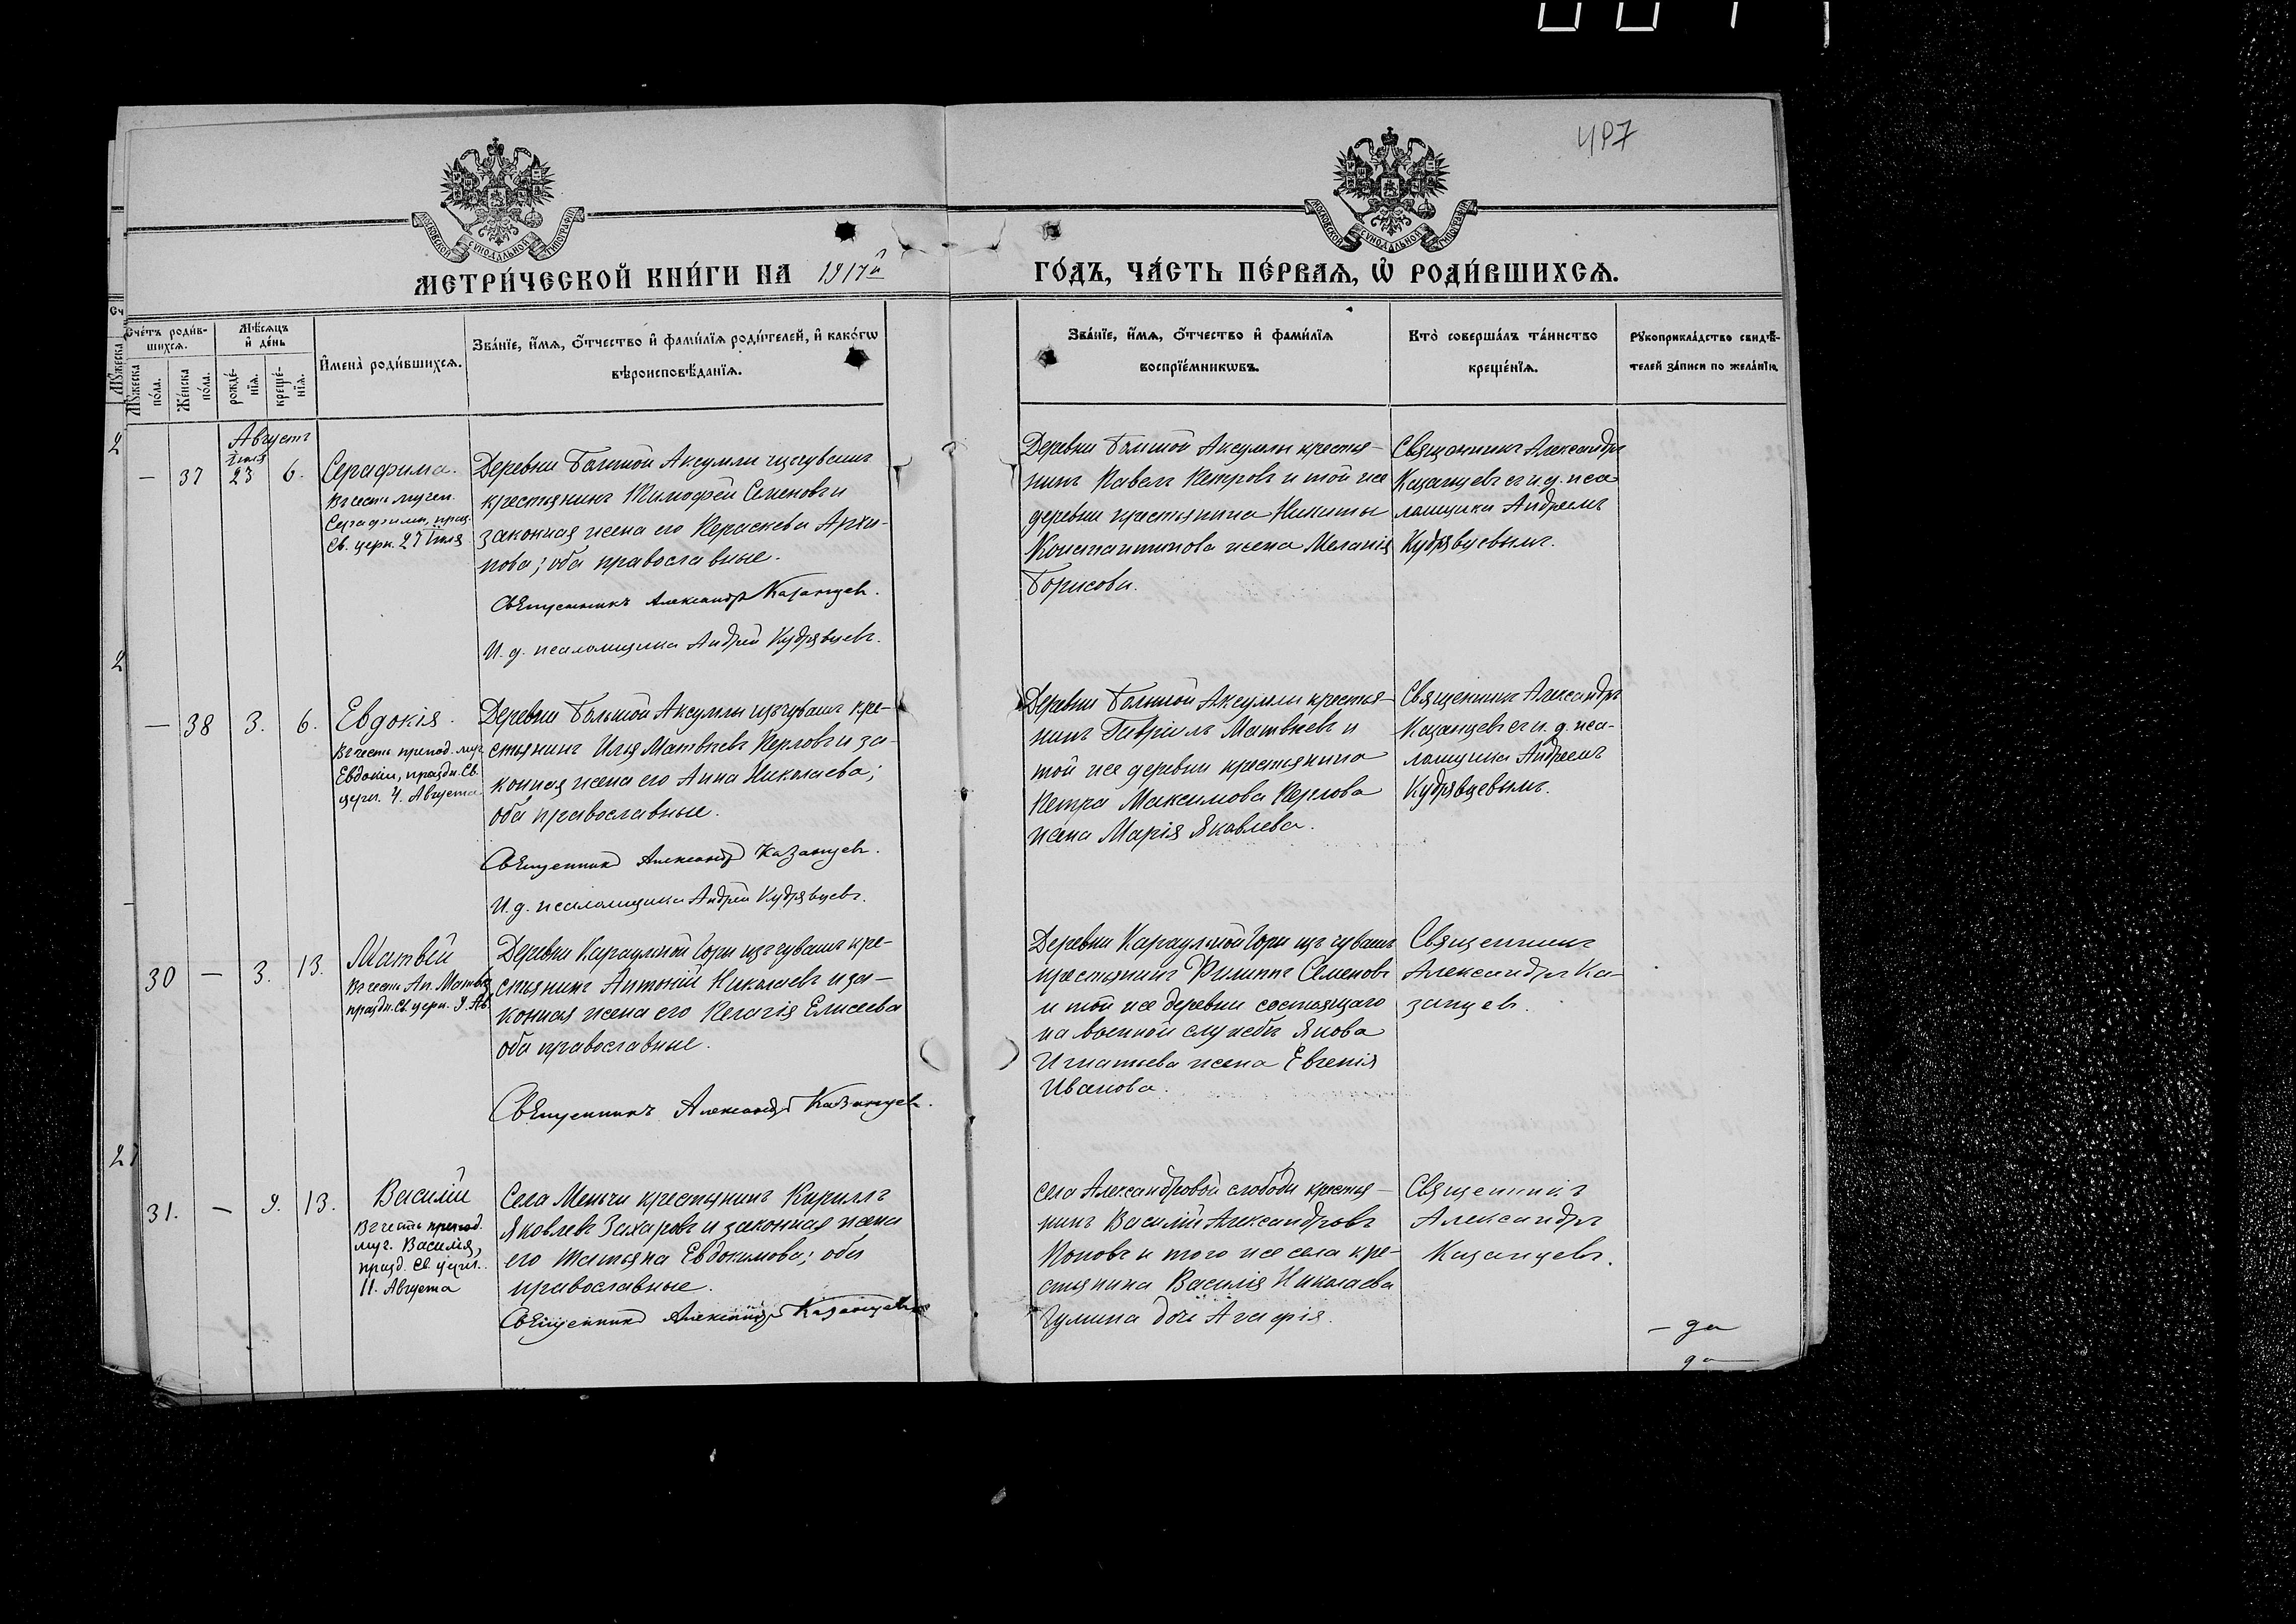 497
МОСКОВСКОЙ СУНОДАЛЬНОЙ ТИПОГРАФІИ
МОСКОВСКОЙ СУНОДАЛЬНОЙ ТИПОГРАФІИ
МЕТРИ́ЧЕСКОЙ КНИ́ГИ НА 1917й
ГО́ДЪ, ЧА́СТЬ ПЕ́РВАѦ, Ѽ РОДИ́ВШИХСѦ.
Сче́тъ роди́в-
шихсѧ.
Мꙋ́жеска
по́ла.
Же́нска
по́ла.
Мѣ́сѧцъ
и҆ де́нь
рожде́-
нїѧ.
креще́-
нїѧ.
И҆мена̀ роди́вшихсѧ.
Зва́нїе, и҆́мѧ, ѻ҆́тчество и҆ фами́лїѧ роди́телей, и҆ како́гѡ
вѣроисповѣ́данїѧ.
Зва́нїе, и҆́мѧ, ѻ҆́тчество и҆ фами́лїѧ
воспрїе́мникѡвъ.
Кто̀ соверша́лъ та́инство
креще́нїѧ.
Рꙋкоприкла́дство свидѣ́-
телей за́писи по жела́нїю.
Августъ
—
37
Іюля
23
6.
Серафима.
Въ честь мучен.
Серафимы, празд.
Св. церк. 27 Іюля
Деревни Большой Аксумлы изъ чувашъ
крестьянинъ Тимофей Семеновъ и
законная жена его Пераскева Архи-
пова; оба православные.
Священникъ Александръ Казанцевъ.
И. д. псаломщика Андрей Кудрявцевъ.
Деревни Большой Аксумлы крестья-
нинъ Павелъ Петровъ и той же
деревни крестьянина Никиты
Константинова жена Меланія
Борисова.
Священникъ Александръ
Казанцевъ съ и. д. пса
ломщика Андреемъ
Кудрявцевымъ.
—
38
3.
6.
Евдокія.
Въ честь препод. муч.
Евдокіи, праздн. Св.
церк. 4. Августа.
Деревни Большой Аксумлы изъ чувашъ кре-
стьянинъ Илья Матвѣевъ Перловъ и за-
конная жена его Анна Николаева;
оба православные.
Священникъ Александръ Казанцевъ.
И. д. псаломщика Андрей Кудрявцевъ.
Деревни Большой Аксумлы крестья-
нинъ Гавріилъ Матвѣевъ и
той же деревни крестьянина
Петра Максимова Перлова
жена Марія Яковлева.
Священникъ Александръ
Казанцевъ съ и. д. пса-
ломщика Андреемъ
Кудрявцевымъ.
30
—
3.
13.
Матвѣй
Въ честь Ап. Матвѣя,
праздн. Св. церк. 9. Ав.
Деревни Караульной Горы изъ чувашъ кре-
стьянинъ Антоній Николаевъ и за-
конная жена его Пелагія Елисеева
оба православные.
Священникъ Александръ Казанцевъ.
Деревни Караульной Горы изъ чувашъ
крестьянинъ Филиппъ Семеновъ
и той же деревни состоящаго
на военной службѣ Якова
Игнатьева жена Евгенія
Иванова.
Священникъ
Александръ Ка-
занцевъ.
31.
—
9.
13.
Василій
Въ честь препод.
муч. Василія,
празд. Св. церк.
11. Августа
Села Менчи крестьянинъ Кириллъ
Яковлевъ Захаровъ и законная жена
его Татьяна Евдокимова; оба
православные.
Священникъ Александръ Казанцевъ
Села Александровой слободы крестья-
нинъ Василій Александровъ
Поповъ и того же села кре-
стьянина Василія Николаева
Гулина дочь Агафія.
Священникъ
Александръ
Казанцевъ.
— да
да